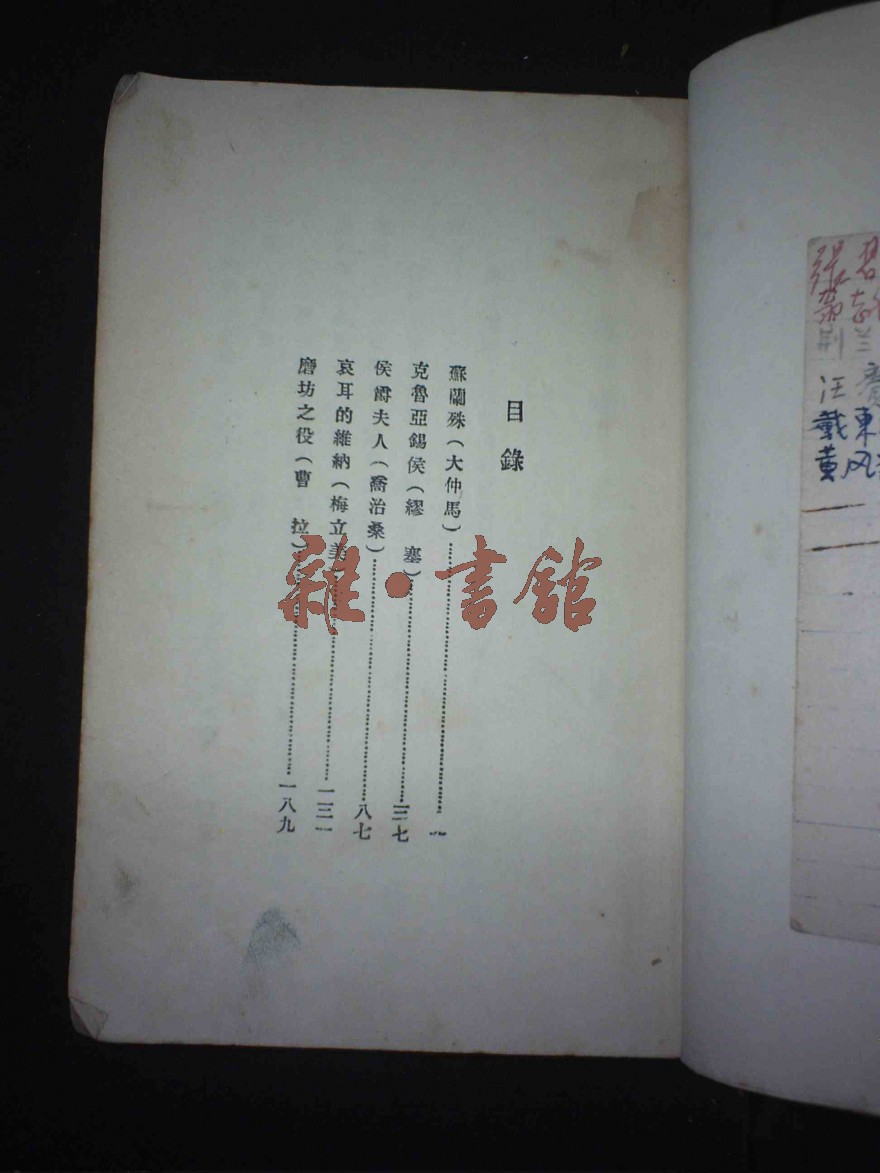 汪
戴東
黄风
目錄
蘇蘭殊(大仲馬)……一
克魯亞錫侯(繆 塞)……三七
侯爵夫人(喬治桑)……八七
哀耳的維納(梅立美)……一三一
磨坊之役(曹 拉)……一八九
雜·書館